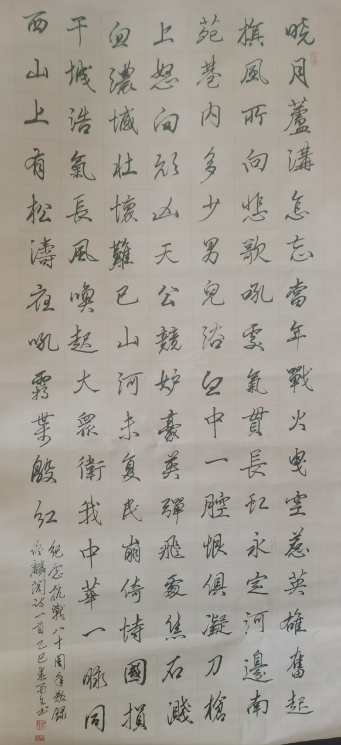 晓月蘆溝怎忘當年戰火曳空惹英雄奮起
旗風所向悲歌吼處氣貫長虹永定河邊南
苑巷内多少男兒浴血中一腔恨俱凝刀槍
上怒向頑凶天公競妒豪英彈飛處焦石濺
血濃憾壮懷難已山河未复民崩倚恃國損
干城浩氣長風喚起大眾衛我中華一脉同
西山上有松濤夜吼霜葉殷红
紀念抗戰八十周年敬録
麟阁詩一首乙巳